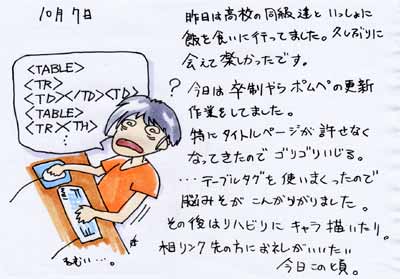 10月7日
<TABLE>
<TR>
<TD></TD><TD>
<TABLE>
<TR><TH>
?
昨日は高校の同級達といっしょに
飯を食いに行ってました。久しぶりに
会えて楽しかったです。
今日は卒制やらホムペの更新
作業をしてました。
特にタイトルページが許せなく
なってきたのでゴリゴリいじる。
…テーブルタグを使いまくったので
脳みそがこんがらがりました。
その後はリハビリにキャラ描いたり。
相リンク先の方にお礼がいいたい
今日この頃。
ねむい…。